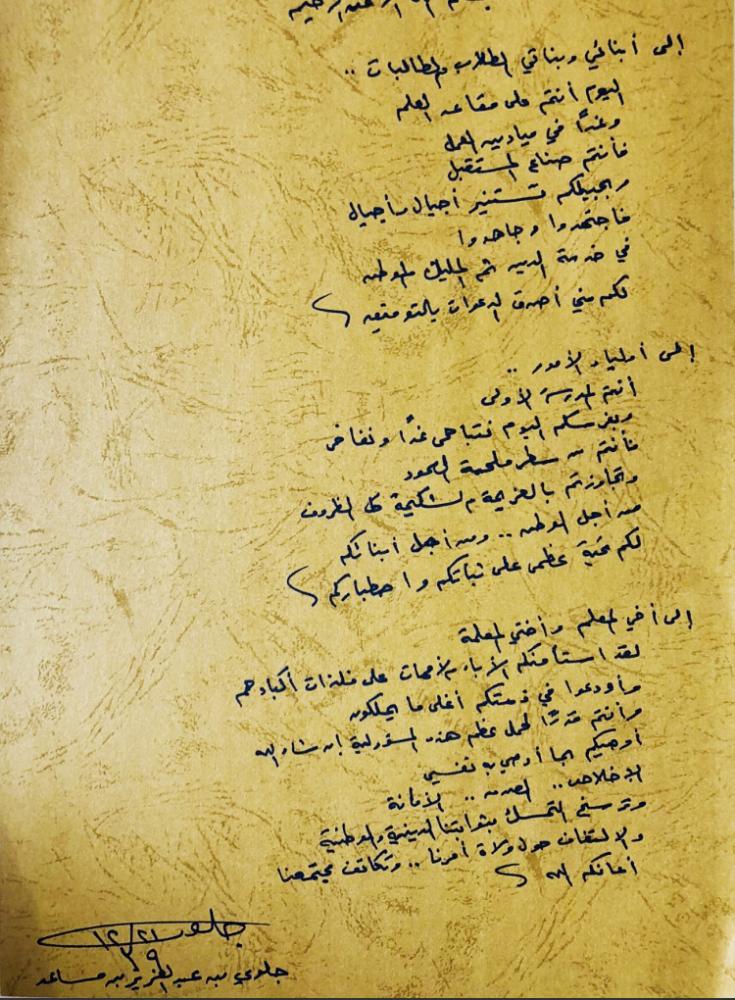 بسم الله الرحمن الرحيم
إلى أبنائي وبناتي الطلاب والطالبات ..
اليوم أنتم على مقاعد العلم
وغدًا في ميادين العمل
فأنتم صناع المستقبل
وبجيلكم تستنير أجيال وأجيال
فاجتهدوا وجاهدوا
في خدمة الدين ثم المليك والوطن
لكم مني أصدق الدعوات بالتوفيق
إلى أولياء الأمور ..
أنتم المدرسة الأولى
وبغرسكم اليوم نتباهى غدًا ونفاخر
فأنتم من سطر ملحمة الصمود
وتجاوزتم بالعزيمة والشكيمة كل الظروف
من أجل الوطن .. ومن أجل أبنائكم
لكم تحية عظمى على ثباتكم واصطباركم
إلى أخي المعلم وأختي المعلمة
لقد استأمنكم الآباء والأمهات على فلذات أكبادهم
وأودعوا في ذمتكم أغلى ما يملكون
وأنتم قدرًا لحمل عظم هذه المسؤولية إن شاء الله
أوصيكم بما أوصي به نفسي
الإخلاص .. الصدق .. الأمانة
وترسيخ التمسك بثوابتنا الدينية والوطنية
والالتفاف حول ولاة أمرنا .. وتكاتف مجتمعنا
أعانكم الله
جلوي
١٢/٢١
٣٩
جلوي بن عبدالعزيز بن مساعد